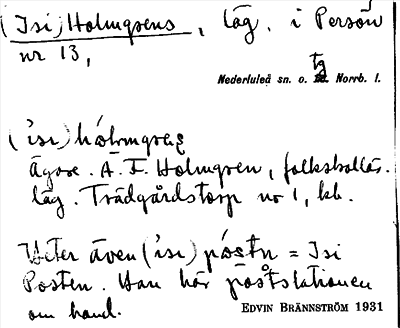 (Isi) Holmgrens, läg. i Persön
nr 13,
tg
Nederluleå sn. o. Norrb. l.
(ˈisi) hólmgrens
Ägare. A. F. Holmgren, folkskollär.
läg. Trädgårdstorp nr 1, kb.
Heter även (ˈisi) póstn = Isi
Posten. Han har poststationen
om hand.
EDVIN BRÄNNSTRÖM 1931